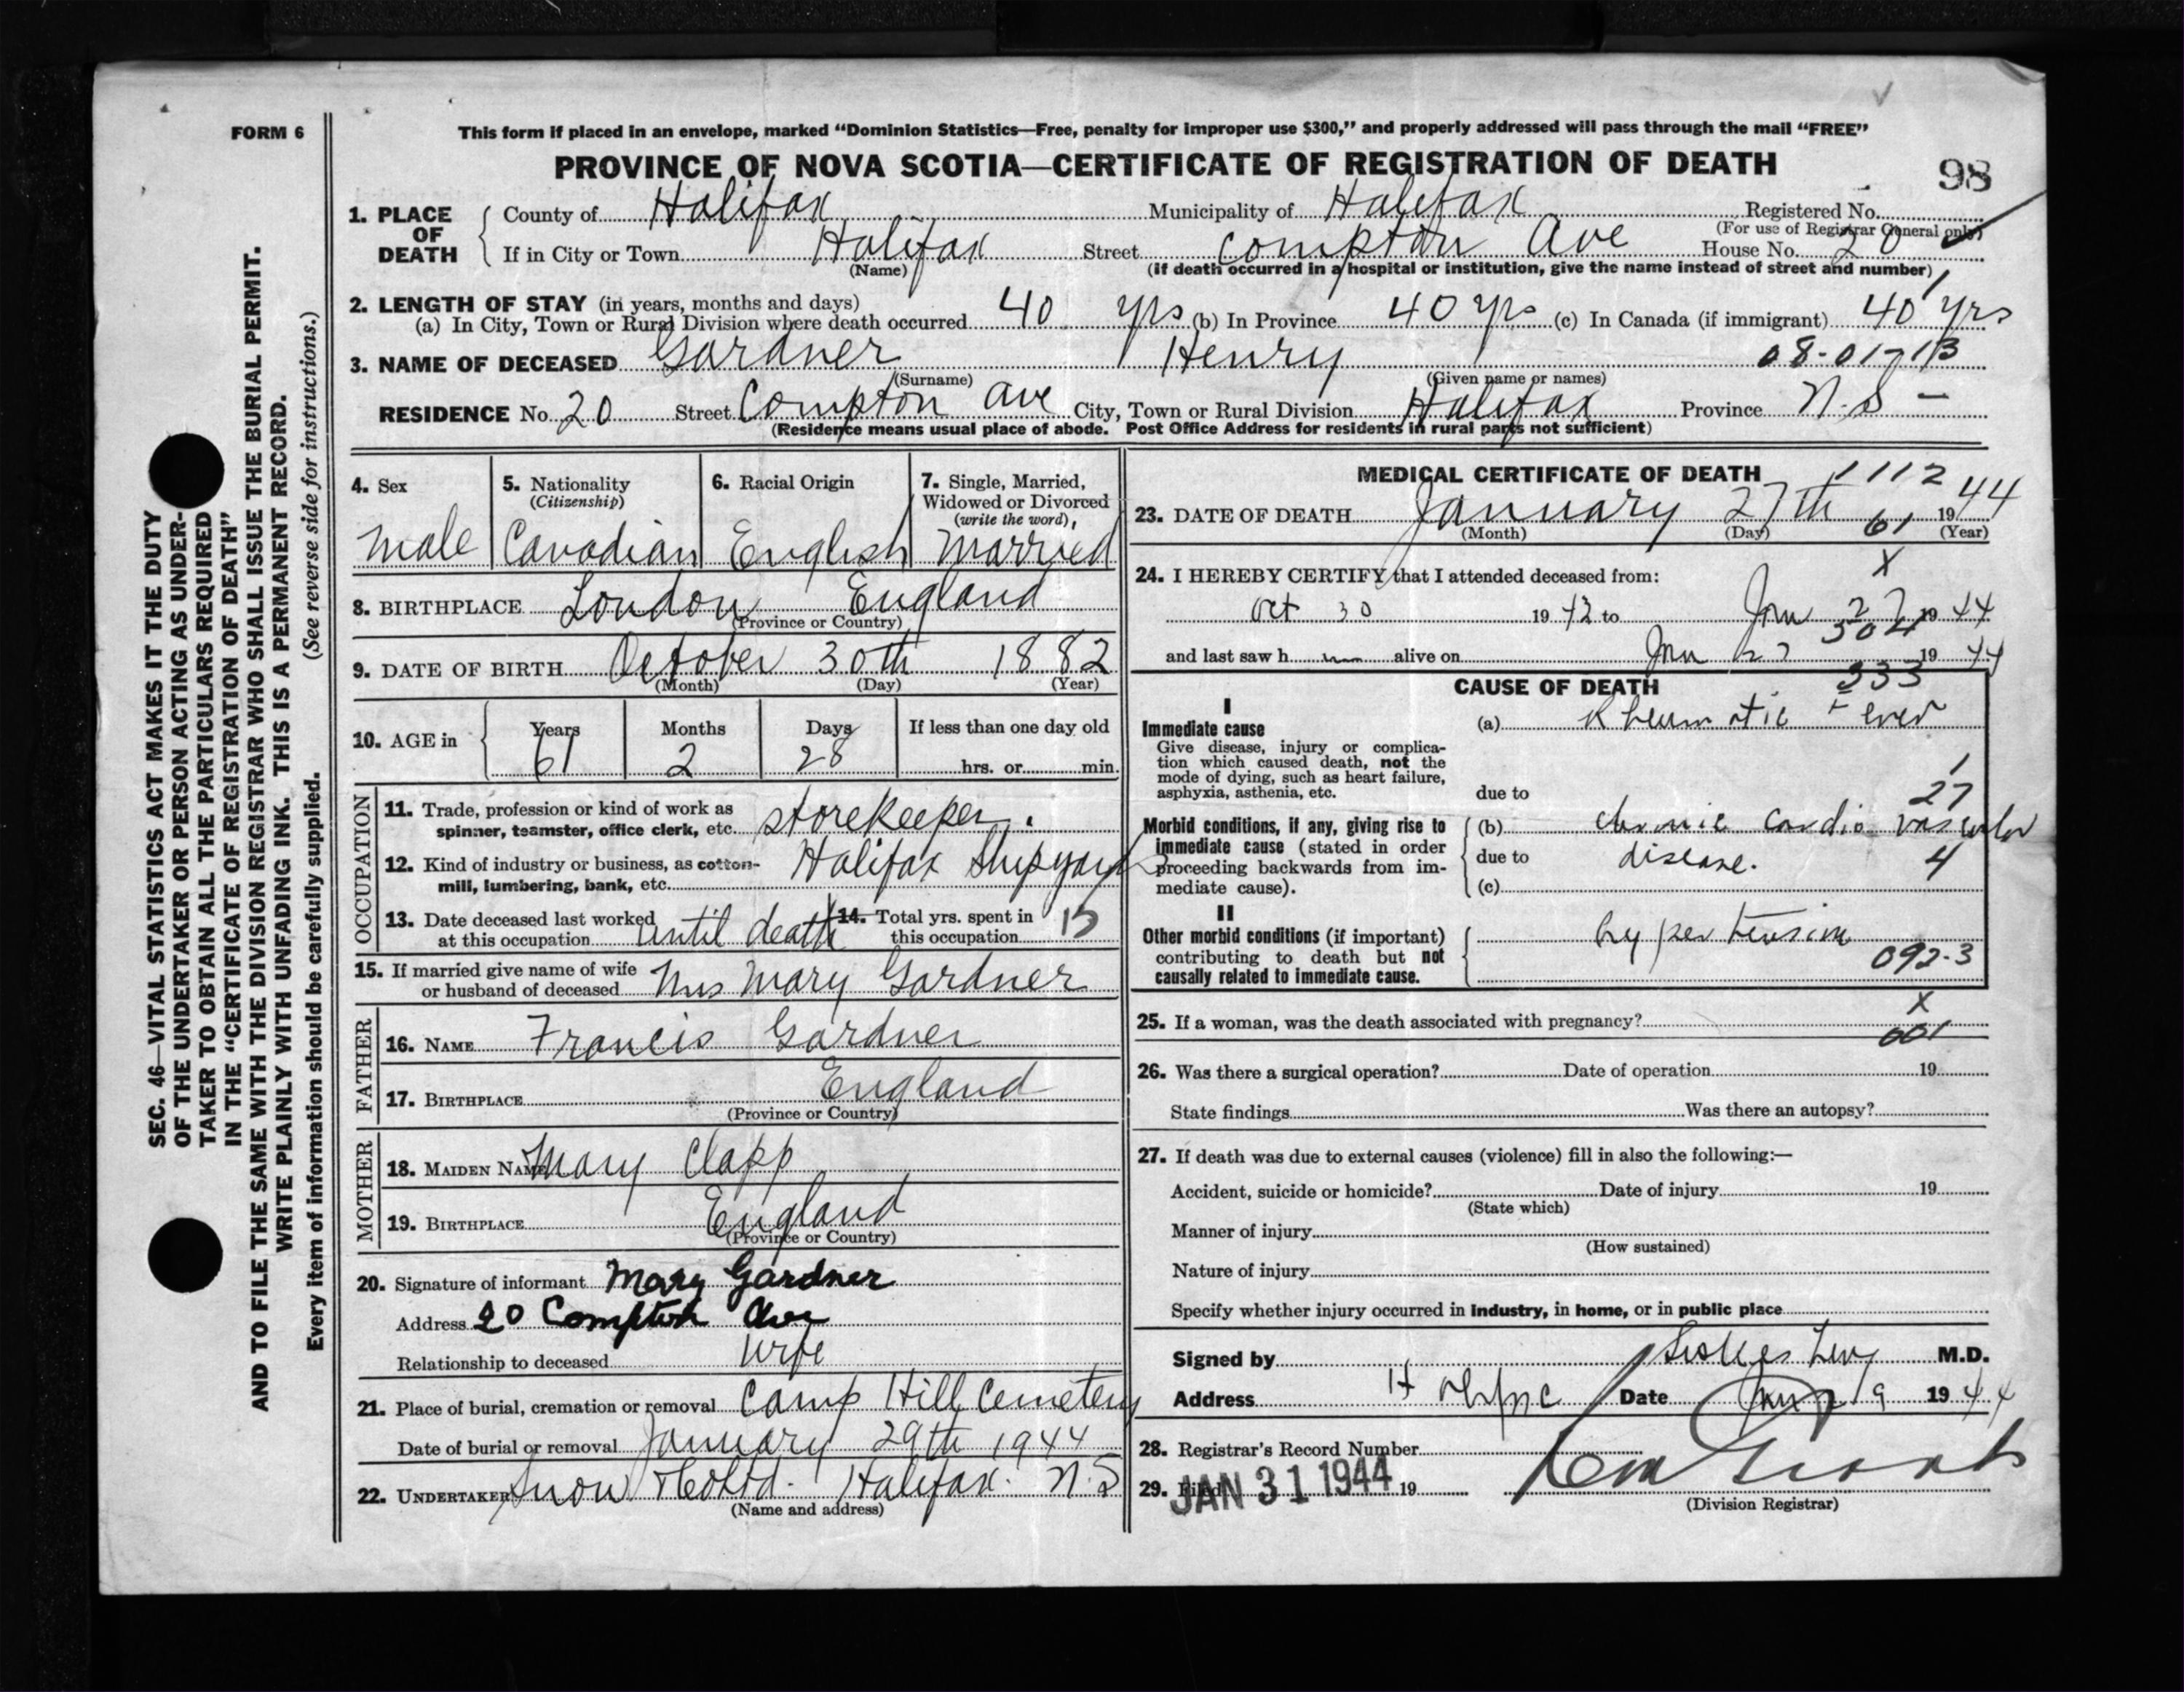 FORM 6
This form if placed in an envelope, marked "Dominion Statistics—Free, penalty for improper use $300," and properly addressed will pass through the mail "FREE"
PROVINCE OF NOVA SCOTIA—CERTIFICATE OF REGISTRATION OF DEATH
98
SEC. 46—VITAL STATISTICS ACT MAKES IT THE DUTY
OF THE UNDERTAKER OR PERSON ACTING AS UNDER-
TAKER TO OBTAIN ALL THE PARTICULARS REQUIRED
IN THE "CERTIFICATE OF REGISTRATION OF DEATH"
AND TO FILE THE SAME WITH THE DIVISION REGISTRAR WHO SHALL ISSUE THE BURIAL PERMIT.
WRITE PLAINLY WITH UNFADING INK. THIS IS A PERMANENT RECORD.
Every item of information should be carefully supplied. (See reverse side for instructions.)
1. PLACE OF DEATH
County of Halifax Municipality of Halifax Registered No.
(For use of Registrar General only)
If in City or Town Halifax Street Compton Ave House No. 20
(Name) (If death occurred in a hospital or institution, give the name instead of street and number)
2. LENGTH OF STAY (in years, months and days)
(a) In City, Town or Rural Division where death occurred 40 yrs (b) In Province 40 yrs (c) In Canada (if immigrant) 40 yrs
3. NAME OF DECEASED Gardner Henry 08-01-13
(Surname) (Given name or names)
RESIDENCE No. 20 Street Compton Ave City, Town or Rural Division Halifax Province N.S —
(Residence means usual place of abode. Post Office Address for residents in rural parts not sufficient)
4. Sex
Male
5. Nationality
(Citizenship)
Canadian
6. Racial Origin
English
7. Single, Married,
Widowed or Divorced
(write the word)
Married
8. BIRTHPLACE London England
(Province or Country)
9. DATE OF BIRTH October 30th 1882
(Month) (Day) (Year)
10. AGE in Years Months Days If less than one day old
61 2 28 hrs. or min.
OCCUPATION
11. Trade, profession or kind of work as
spinner, teamster, office clerk, etc. storekeeper.
12. Kind of industry or business, as cotton-
mill, lumbering, bank, etc. Halifax Shipyard
13. Date deceased last worked
at this occupation until death
14. Total yrs. spent in
this occupation 15
15. If married give name of wife
or husband of deceased Mrs Mary Gardner
FATHER
16. NAME Francis Gardner
17. BIRTHPLACE England
(Province or Country)
MOTHER
18. MAIDEN NAME Mary Clapp
19. BIRTHPLACE England
(Province or Country)
20. Signature of informant Mary Gardner
Address 20 Compton Ave
Relationship to deceased Wife
21. Place of burial, cremation or removal Camp Hill Cemetery
Date of burial or removal January 29th 1944
22. UNDERTAKER Snow & Co Ltd. Halifax. N.S
(Name and address)
MEDICAL CERTIFICATE OF DEATH
1112
23. DATE OF DEATH January 27th 61 1944
(Month) (Day) (Year)
X
24. I HEREBY CERTIFY that I attended deceased from:
Oct 30 1942 to Jan 27 1944
304
and last saw h alive on Jan 27 1944
333
CAUSE OF DEATH
I
Immediate cause
Give disease, injury or complica-
tion which caused death, not the
mode of dying, such as heart failure,
asphyxia, asthenia, etc.
(a) Rheumatic Fever
1
27
due to
Morbid conditions, if any, giving rise to
immediate cause (stated in order
proceeding backwards from im-
mediate cause).
(b) chronic cardio vascular
due to disease.
4
(c)
II
Other morbid conditions (if important)
contributing to death but not
causally related to immediate cause.
hypertension
092-3
X
25. If a woman, was the death associated with pregnancy?
001
26. Was there a surgical operation? Date of operation 19
State findings Was there an autopsy?
27. If death was due to external causes (violence) fill in also the following:—
Accident, suicide or homicide? Date of injury 19
(State which)
Manner of injury
(How sustained)
Nature of injury
Specify whether injury occurred in industry, in home, or in public place
Signed by M.D.
Address Date 1944
28. Registrar's Record Number
29. Filed JAN 31 1944 19
(Division Registrar)